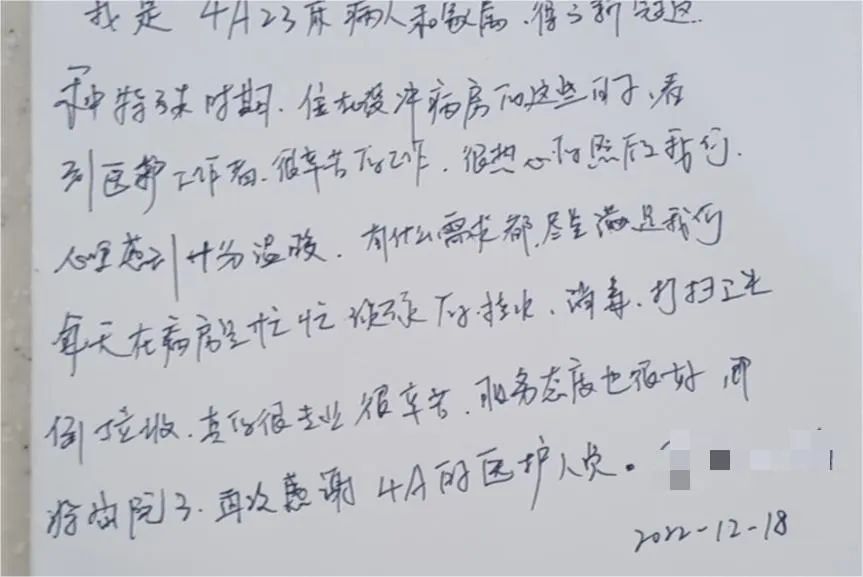 我是 4A23床病人和家属、得了新冠这
种特殊时期、住在缓冲病房的这些日子,看
到医护工作者、很辛苦的工作、很热心的照顾我们、
心里感到十分温暖、有什么需求都尽量满足我们
每天在病房里忙忙 的挂水、消毒、打扫卫生
倒垃圾、真的很专业很辛苦、服务态度也很好,即
将出院了、再次感谢 4A的医护人员。
2022-12-18